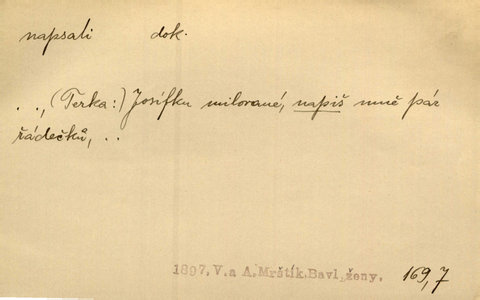 napsali dok.
. . , (Terka:) Josífku milované, napiš mně pár
řádečků, . .
1897. V. a A. Mrštík, Bavl. ženy. 169,7